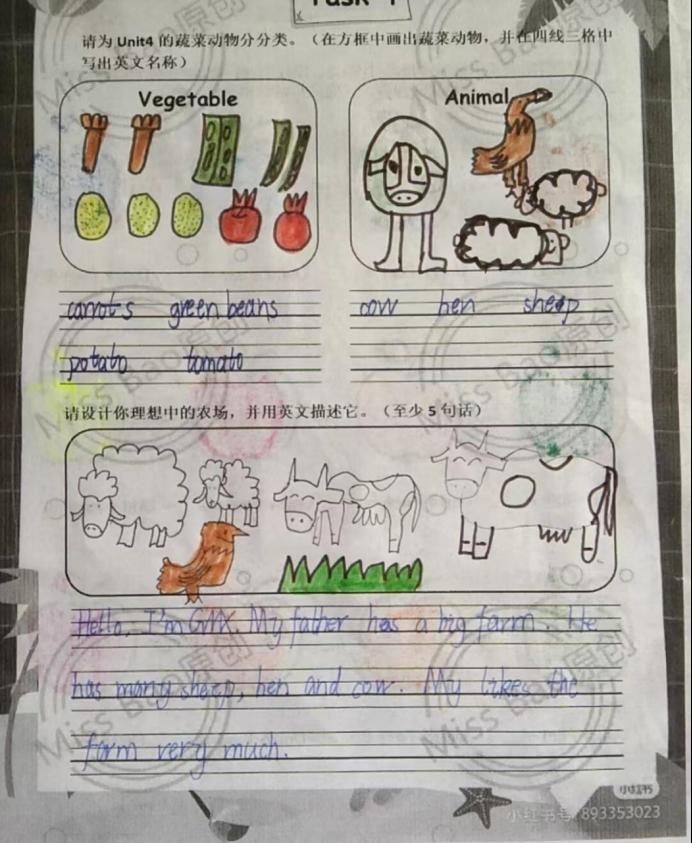 Task 4
请为 Unit4 的蔬菜动物分分类。（在方框中画出蔬菜动物，并在四线三格中
写出英文名称）
Vegetable
Animal
carrots green beans
cow hen sheep
potato tomato
请设计你理想中的农场，并用英文描述它。（至少 5 句话）
Hello, I'm GMX. My father has a big farm. He
has many sheep, hen and cow. My likes the
farm very much.
Miss Bao原创
小红书
小红书号:893353023